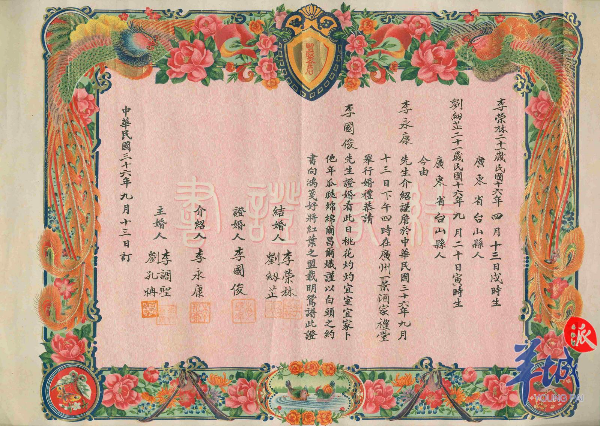 李榮林二十一歲民國十六年四月十三日戌時生
廣東省台山縣人
劉幼芷二十一歲民國十六年九月二十日寅時生
廣東省台山縣人
今由
李永康先生介紹謹詹於中華民國三十六年九月
十三日下午四時在廣州一景酒家禮堂
舉行婚禮恭請
李國俊先生證婚看此日桃花灼灼宜室宜家卜
他年瓜瓞綿綿爾昌爾熾謹以白頭之約
書向鴻箋好將紅葉之盟載明鴛譜此證
結婚人 李榮林
劉幼芷
證婚人 李國俊
介紹人 李永康
主婚人 李調
劉孔
中華民國三十六年九月十三日訂
結婚證書
羊城派
YOUNG PAI